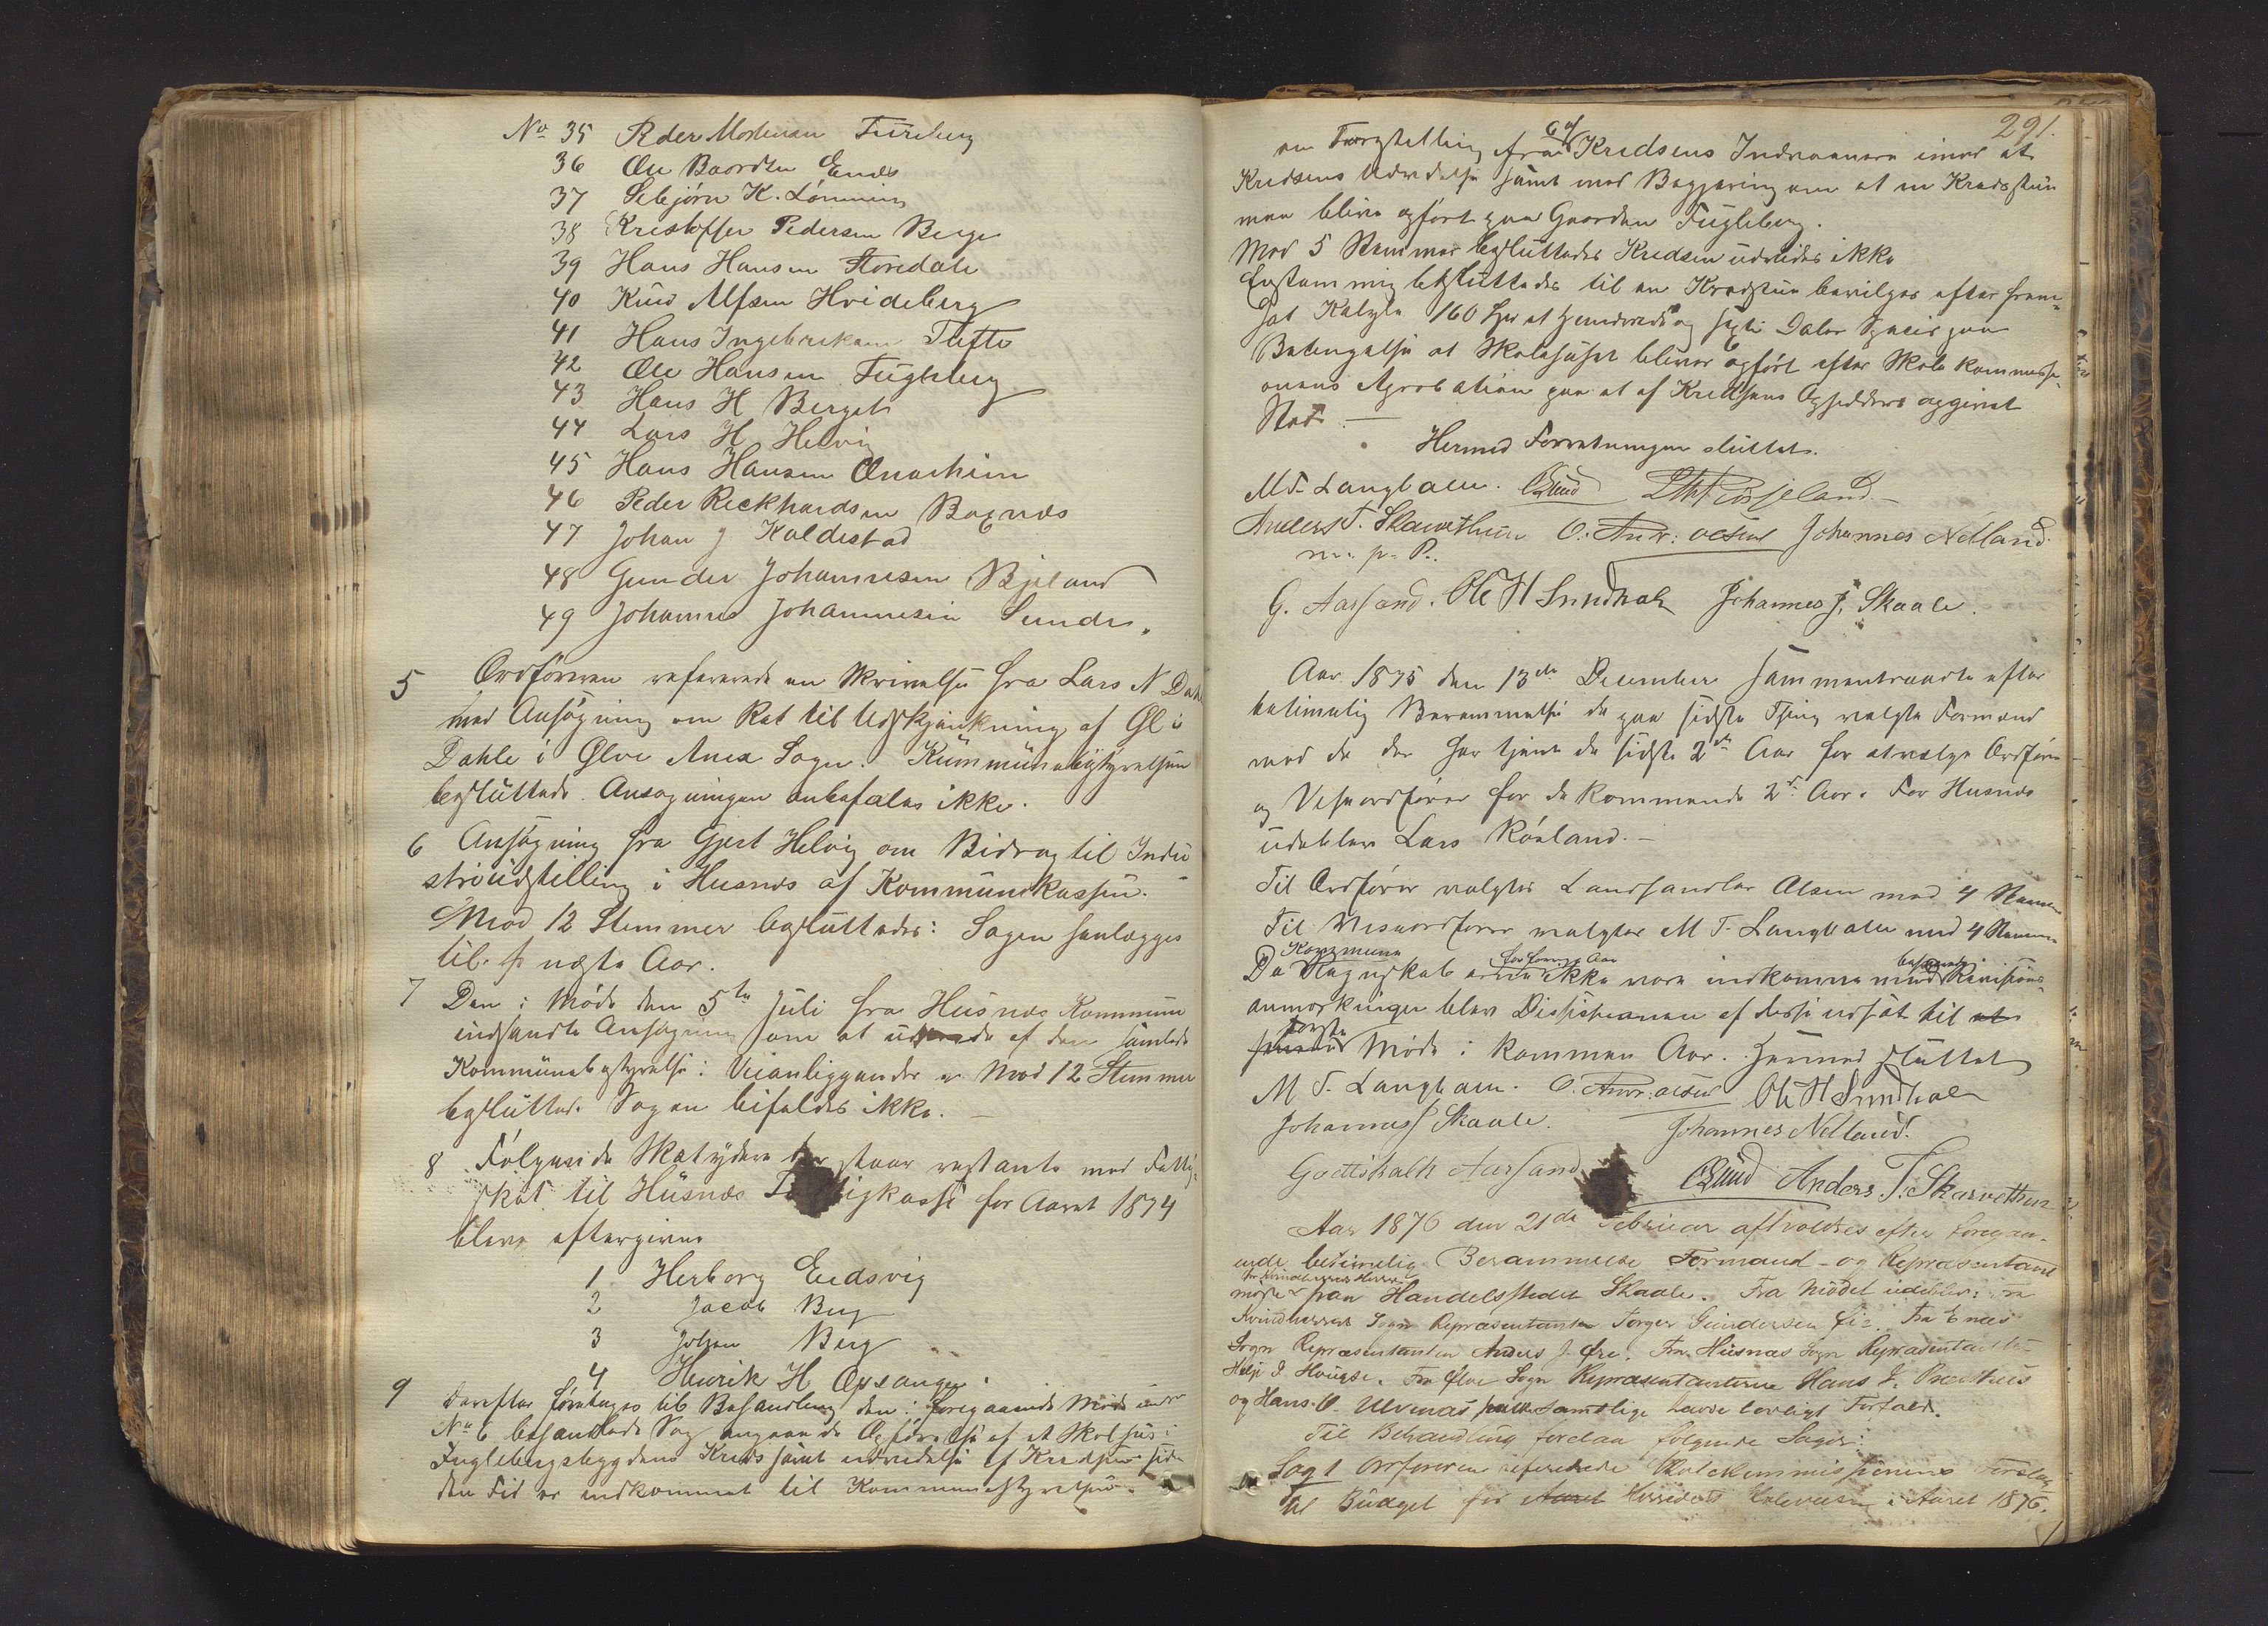 No 35 Peder Mortensen Fureberg
36 Ole Baardsen Enæs
37 Sebjörn K. Lönning
38 Kristoffer Pedersen Berge
39 Hans Hansen Störedale
40 Knud Alfsen Hvideberg
41 Hans Ingebriksen Tufte
42 Ole Hansen Fugleberg
43 Hans H Berget
44 Lars H Helvig
45 Hans Hansen
46 Peder Reckhardsen Bognæs
47 Johan J Kaldestad
48 Gunder Johannesen Bjeland
49 Johannes Johannesen Sunde.
5 Ordföreren refererede en Skrivelse fra Lars N Dahle
med Ansögning om Ret til Udskjænkning af Øl i
Dahle i Ølve Anex Sogn. Kummunebestyrelsen
besluttede Ansøgningen anbefales ikke.
6 Ansögning fra Gjert Helvig om Bidrag til Indu
striudstilling i Husnæs af Kommunekassen.
Mod 12 Stemmer besluttedes: Sagen henlægges
til næste Aar.
7 Den i Möde den 5te Juli fra Husnæs Kommune
indsendte Ansøgning om at af den samlede
Kommunebestyrelse i Veianliggender Mod 12 Stemmer
besluttet. Sagen bifaldes ikke.
8 Fölgende Skatydere der staar restante med Fattig
skat til Husnæs Fattigkasse for Aaret 1874
bleve eftergivne
1 Herborg Eidsvig
2 Jacob Berg
3 Johan Berg
4 Henrik H Opsanger.
9 Derefter företoges til Behandling den i foregaaende Möde under
No 6 behandlede Sag angaaende Opförelse af et Skolhus i
Fuglebergsbygdens Kreds samt udvidelse af Kredsen siden
den Tid er indkommet til Kommunebestyrelsen
291.
en Forestilling fra Kredsens Indvaanere imod at
Kredsens Udvidelse samt med Begjæring om at en Kredsstue
maa blive opfört paa Gaarden Fugleberg.
Mod 5 Stemmer besluttedes Kredsen udvides ikke
Enstemmig besluttedes til en Kredsstue bevilges efter frem-
sat Kalgyle 160 Spd et hundrede og sexti Daler Specie paa
Betingelse at Skolehuset bliver opfört efter Skolekommissi-
onens Aprobation paa et af Kredsens Opsiddere opgivet
Sted. —
Hermed Forretningen sluttet.
M T. Langballe. Gmd
Anders T. Skarvethun O. Andr: Olsen Johannes Netland.
m. p. P.
G. Aarsand. Ole H Sundhah Johannes J. Skaale.
Aar 1875 den 13de December sammentraadte efter
betimelig Berammelse de paa sidste Thing valgte Formænd
med de der har tjent de sidste 2de Aar for at vælge Ordförer
og Viseordförer for de kommende 2de Aar. For Husnæs
udeblev Lars Röseland. —
Til Ordförer valgtes Landhandler Olsen med 4 Stemmer
Til Viseordförer valgtes M T. Langballe med 4 Stemmer
for forrige Aar besvarede
Da Regnskab ikke vare indkomne med Revisions-
anmærkninger blev Dissisionen af disse udsat til et
förste
Möde i kommen Aar. Hermed sluttet
M T. Langballe. O. Andr: Olsen Ole H Sundhah
Johannes J Skaale. Johannes Netland.
Godtskalk Aarsand Gmd Anders T. Skarvethun
Aar 1876 den 21de Februar afholdtes efter foregaa-
ende betimelig Berammelse Formand- og Repræsentant
for Kvindherreds Herred
möde paa Handelsstedet Skaale. Fra Mödet udeblev: fra
Kvindherred Sogn Repræsentanten Torger Gundersen Eie. Fra Enæs
Sogn Repræsentanten Anders J. Øre. Fra Husnæs Sogn Repræsentanten
Helje J. Haugse. Fra Ølve Sogn Repræsentanterne Hans J.
og Hans O. Ulvenæs samtlige havde lovligt Forfald.
Til Behandling forelaa følgende Sager:
Sag 1 Ordföreren refererede Skolekommissionens Forslag
til Budget for Aaret Herredets Skolevæsen i Aaret 1876.